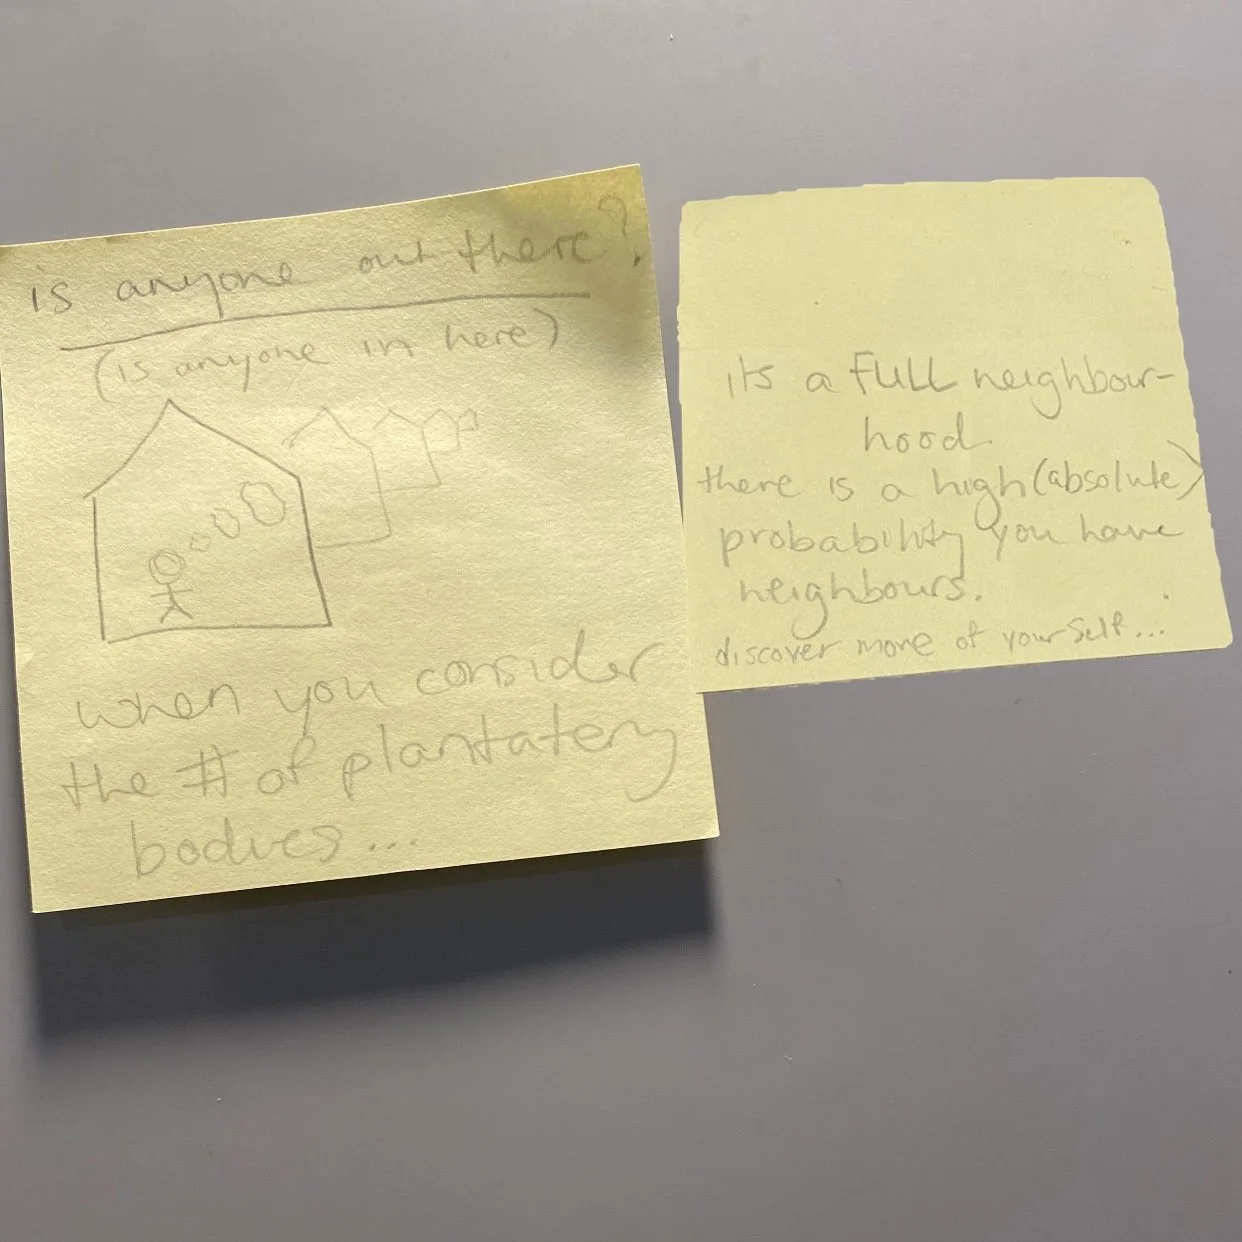 is anyone out there?
(is anyone in here)
when you consider
the # of plantatery
bodies...
its a FULL neighbour-
hood.
there is a high (absolute)
probability you have
neighbours.
discover more of yourself...